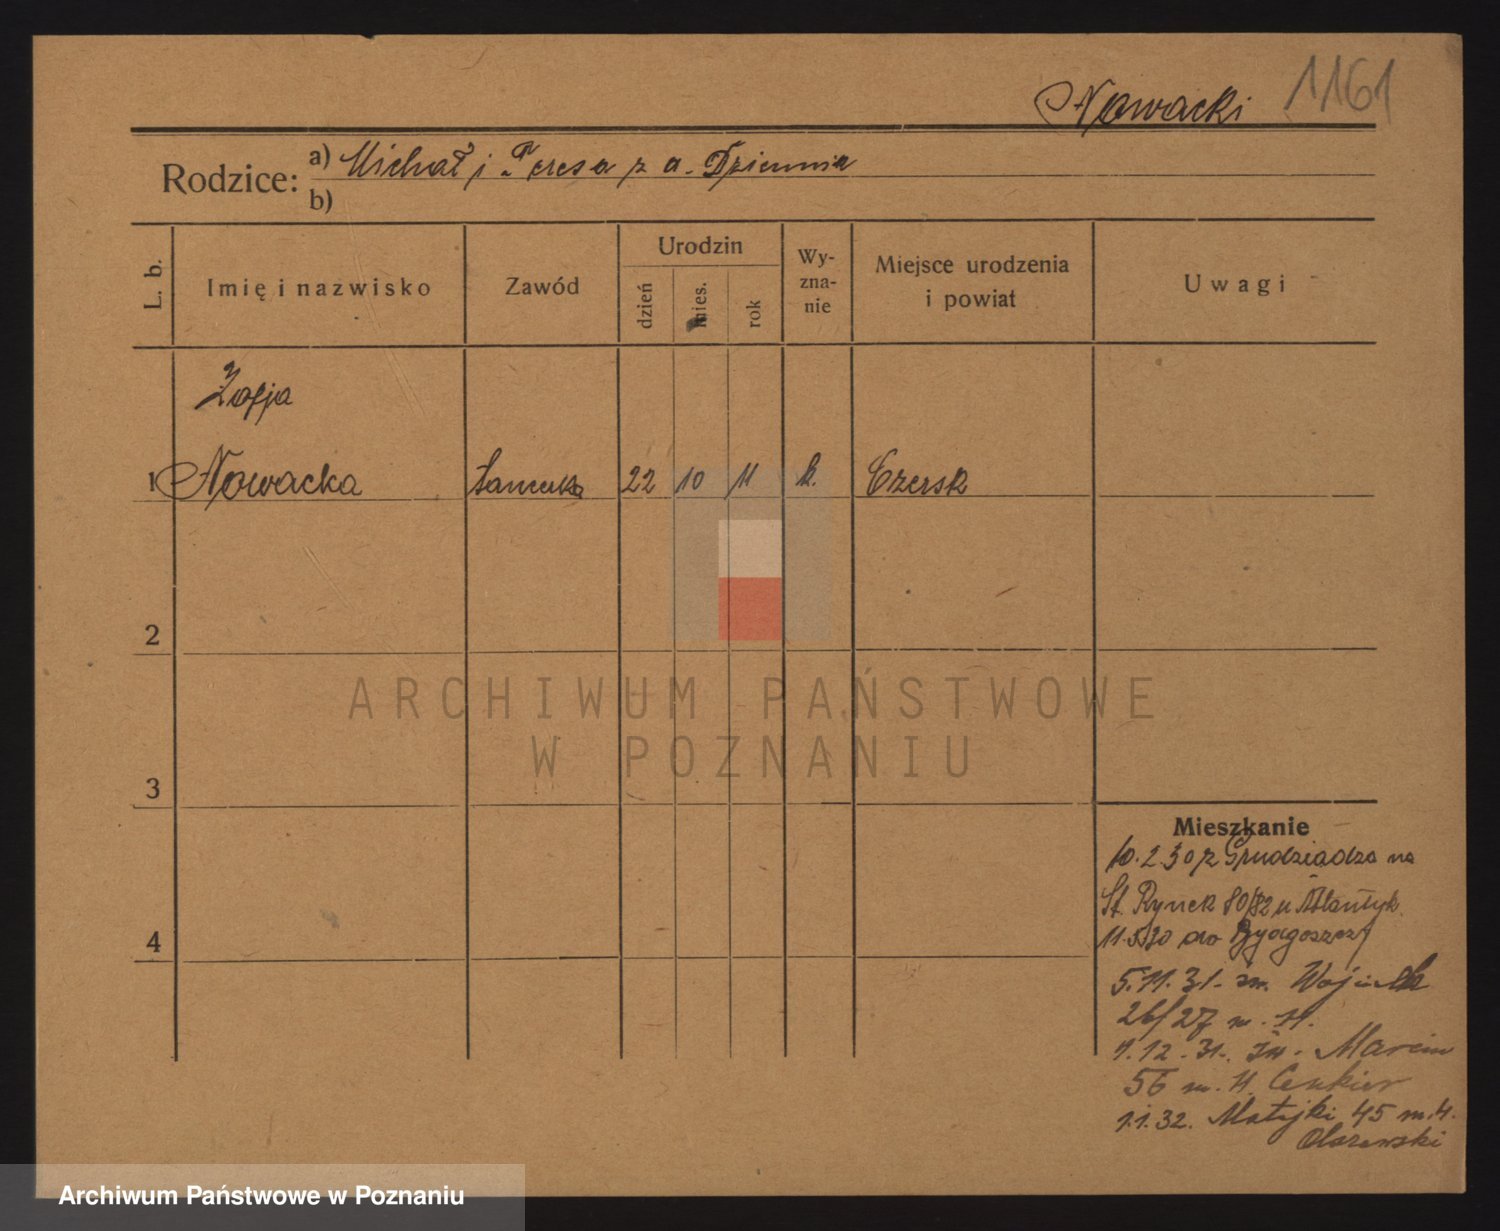 Nowacki 1161
Rodzice: a) Michał i Teresa z d. Dziennia
b)
L. b.
Imię i nazwisko
Zawód
Urodzin
dzień
mies.
rok
Wy-
zna-
nie
Miejsce urodzenia
i powiat
Uwagi
Zofja
1 Nowacka 22 10 11 k. Czersk
2
3
4
ARCHIWUM PAŃSTWOWE
W POZNANIU
Mieszkanie
10.2.30 z Grudziądza na
St. Rynek 80/82 u Atlantyk.
11.5.30 do Bydgoszczy
5.11.31. św. Wojciech
26/27 m. 11.
1.12.31. św. Marcin
56 m. 4. Cenkier
1.1.32. Matejki 45 m. 4.
Olszewski
Archiwum Państwowe w Poznaniu